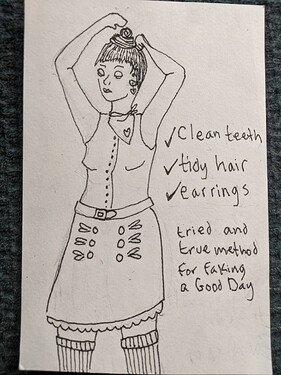 ✓Clean teeth
✓tidy hair
✓earrings
tried and
true method
for faking
a Good Day